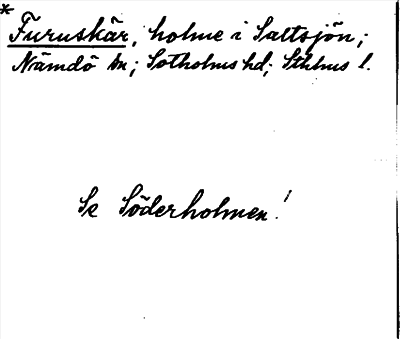 * Furuskär, holme i Saltsjön;
Nämdö sn; Sotholms hd; Sthlms l.
Se Söderholmen!